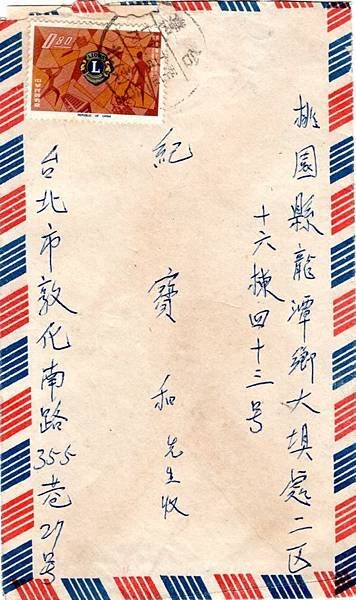 桃園縣龍潭鄉大埧處二区
十六棟四十三号
紀寶和先生收
台北市敦化南路355巷27号
0.80
L
REPUBLIC OF CHINA